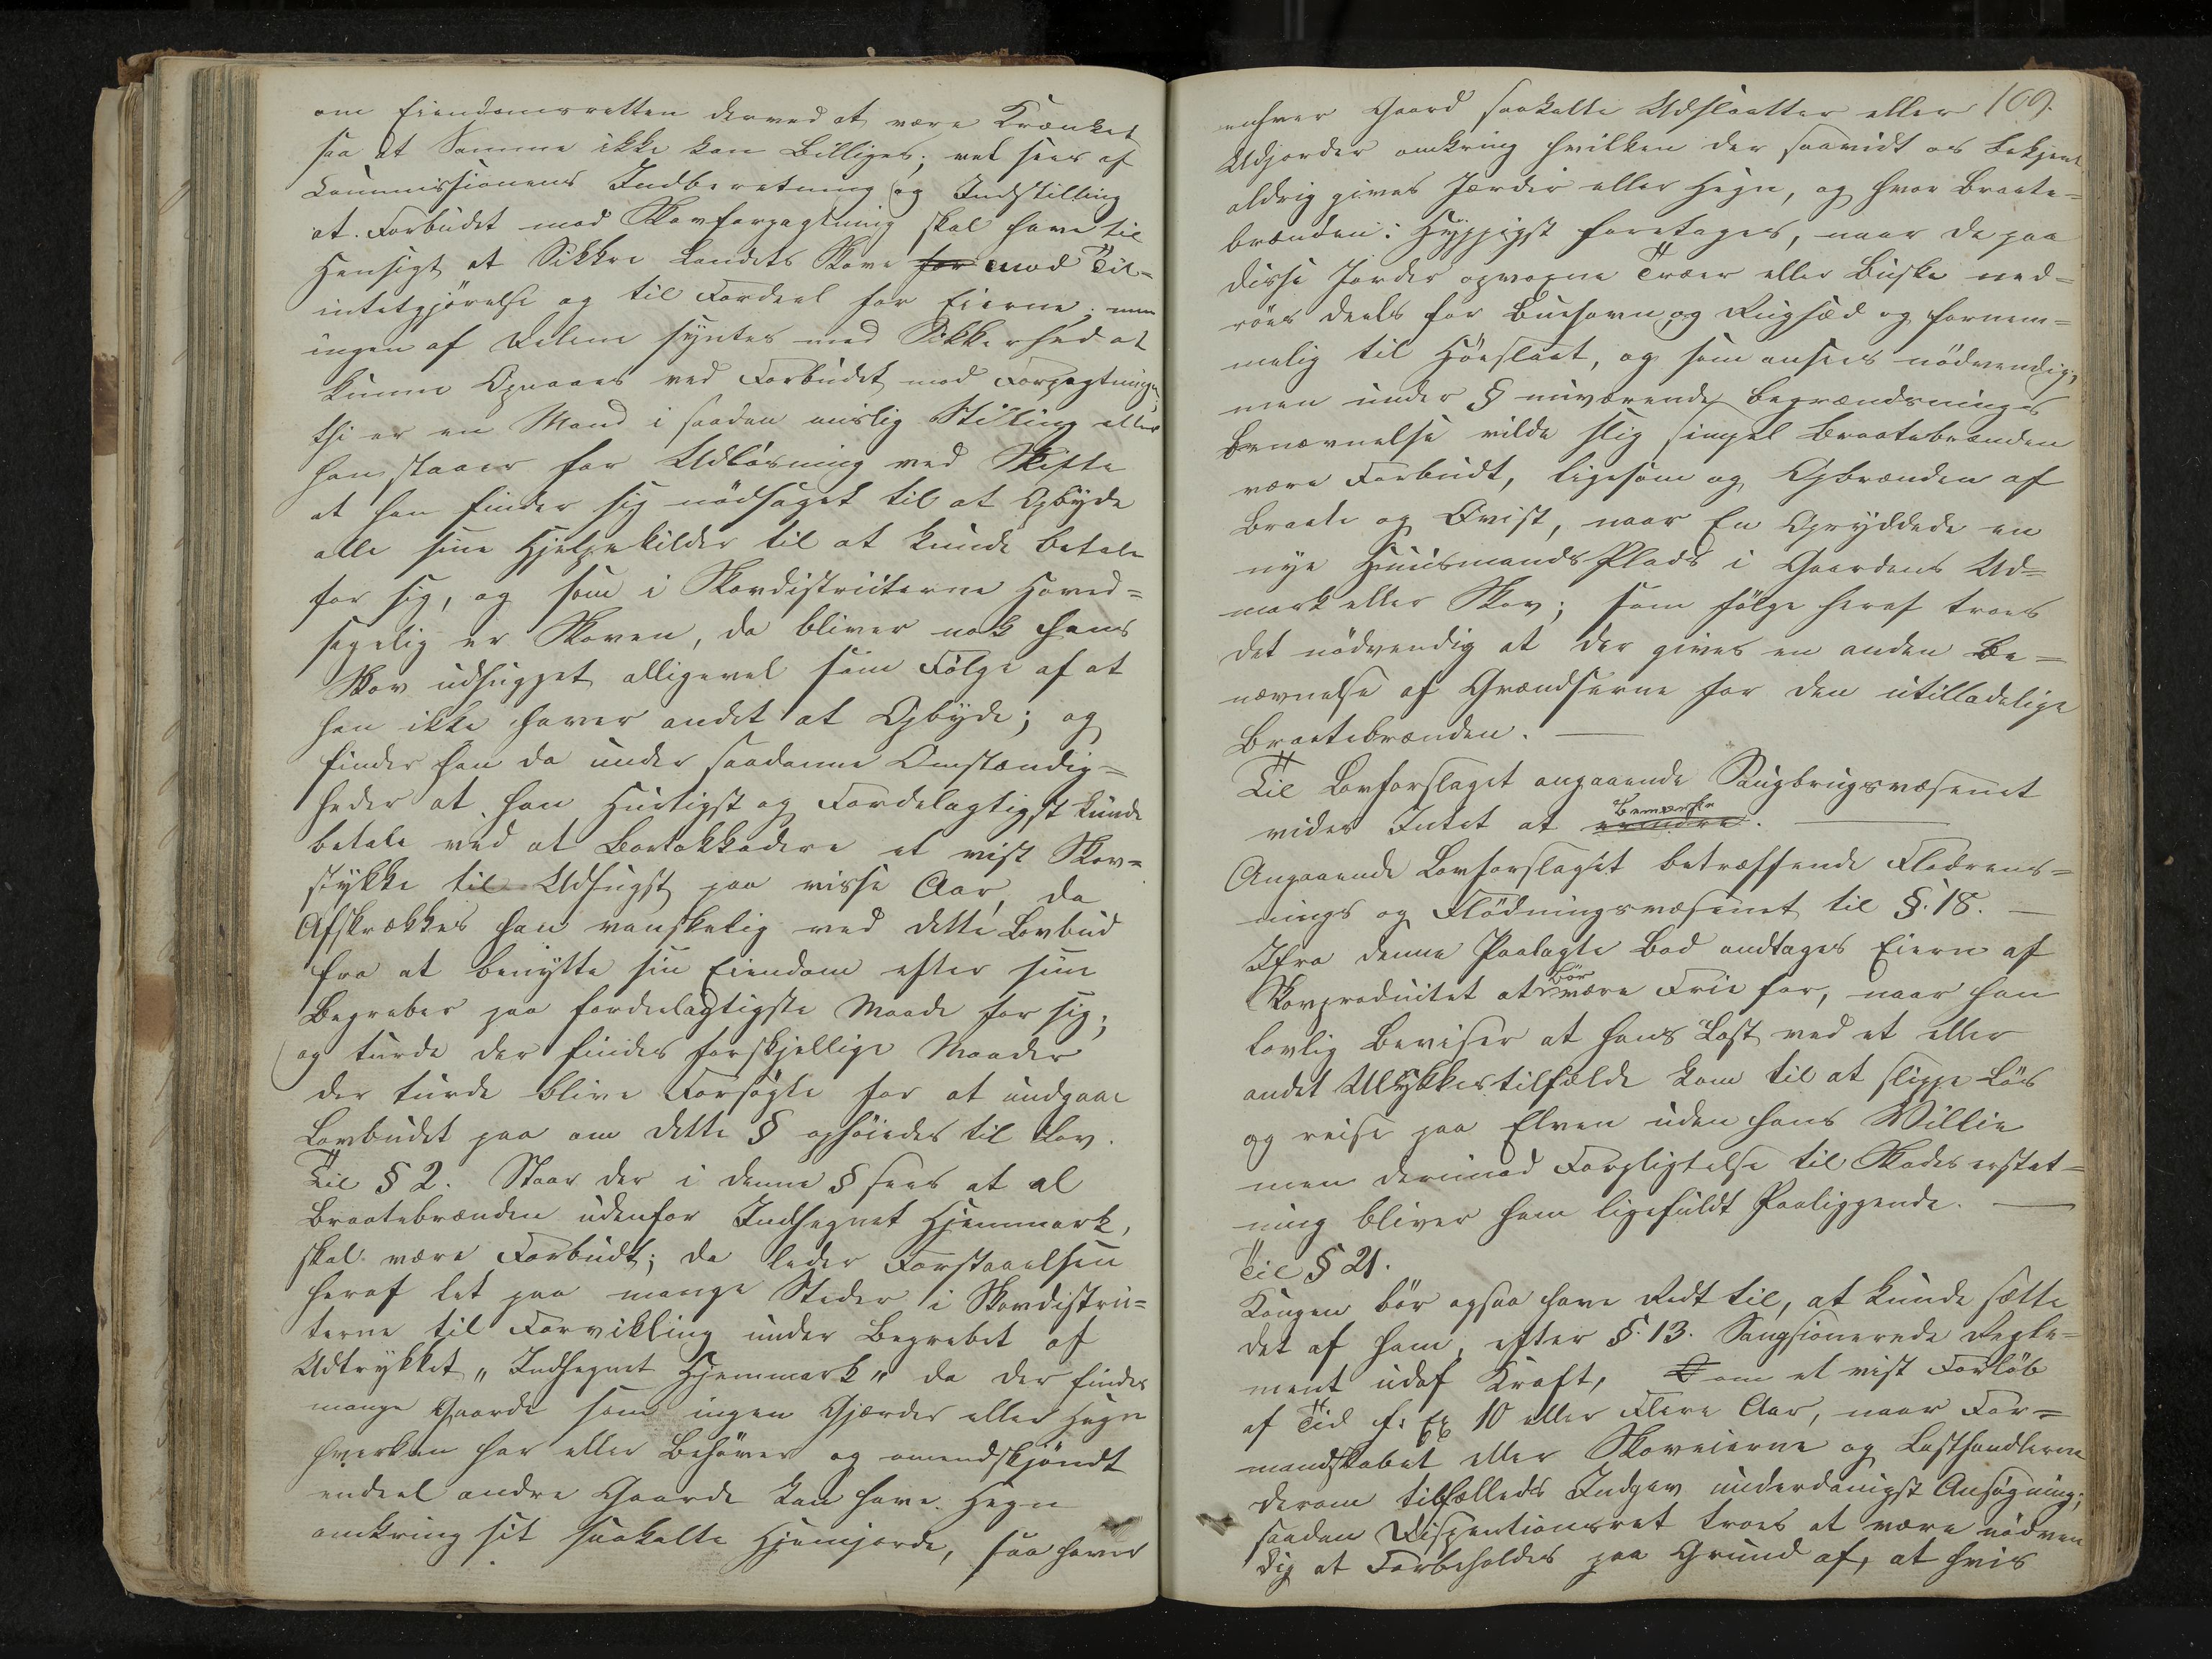 om Eiendomsretten derved at være Krænket
saa at Samme ikke kan Billiges; vel sees af
Commissionens Indberetning og Indstilling
at Forbudet mod Skovforpagtning skal have til
Hensigt at Sikkre Landets Skove for mod Til-
intetgjörelse og til Fordeel for Eierne; men
ingen af Delene syntes med Sikkerhed at
kunne Opnaaes ved Forbudet mod Forpagtninger;
thi er en Mand i saadan mislig Stilling eller
han staaer for Udlösning ved Skifte
at han finder sig nödsaget til at Opbyde
alle sine Hjelpekilder til at kunde betale
for sig, og som i Skovdistricterne Hoved-
sagelig er Skoven, da bliver nok hans
Skov udhugget alligevel som Fölge af at
han ikke haver andet at Opbyde; og
finder han da under saadanne Omstændig-
heder at han Hurtigst og Fordelagtigst kunde
betale ved at Bortakkodere et vist Skov-
stykke til Udhugst paa visse Aar, da
Afskrækkes han vanskelig ved dette Lovbud
fra at benytte sin Eiendom efter sine
Begreber paa fordeelagtigste Maade for sig;
og turde der findes forskjellige Maader
der turde blive Forsögte for at undgaae
Lovbudet paa om dette § ophöiedes til Lov.
Til § 2. Staar der i denne § sees at al
Braatebrænden udenfor Indhegnet Hjemmark,
skal være Forbudt; da leder Forstaaelsen
heraf let paa mange Steder i Skovdistric-
terne til Forvikling under Begrebet af
Udtrykket „Indhegnet Hjemmark„ da der findes
mange Gaarde som ingen Gjærder eller Hegn
hverken har eller Behöver og omendskjöndt
endeel andre Gaarde kan have Hegn
omkring sit saakalte Hjemjorde, saa haver
109.
enhver Gaard saakalte Udslaatter eller
Udjorder omkring hvilken der saavidt os bekjent
aldrig gives Jærder eller Hegn, og hvor Braate-
brænden: Hyppigst foretages, naar de paa
disse Jorder opvoxne Træer eller Buske ned-
röes deels for Buehavn, og Rugsæd og fornem-
melig til Höeslaat, og som ansees nödvendig;
men under § nuværende begrændsninges
Benævnelse vilde slig simpel Braatebrænden
være Forbudt, ligesom og Opbrænden af
Braate og Qvist, naar En Opryddede en
nye HuusmandsPlads i Gaardens Ud-
mark eller Skov; som fölge heraf troes
det nödvendig at der gives en anden Be-
nævnelse af Grændserne for den utilladelige
Braatebrænden.
Til Lovforslaget angaaende Saugbrugsvæsenet
vides Intet at erindre Bemærke.
Angaaende Lovforslaget betræffende Flodrens-
nings og Flödningsvæsenet til § 18.
Ifra denne Paalagte Bod undtages Eieren af
Skovproductet at bör være Frie for, naar han
lovlig Beviser at hans Last ved et eller
andet Ulykkestilfælde kom til at slippe Lös
og reise paa Elven uden hans Villie
men derimod Forpligtelse til Skadeserstat-
ning bliver ham ligefuldt Paaliggende.
Til § 21.
Kongen bör ogsaa have Rett til, at kunde sætte
det af ham, efter § 13. Sangsionerede Regle-
ment udaf Kraft, om et vist Forlöb
af Tid f: Ex 10 eller Flere Aar, naar For-
mandskabet eller Skoveierne og Lasthandlerne
derom tilfælleds Indgav underdanigst Ansögning;
saadan Dispentionsret troes at være nödven
dig at Forbeholdes paa Grund af, at hvis